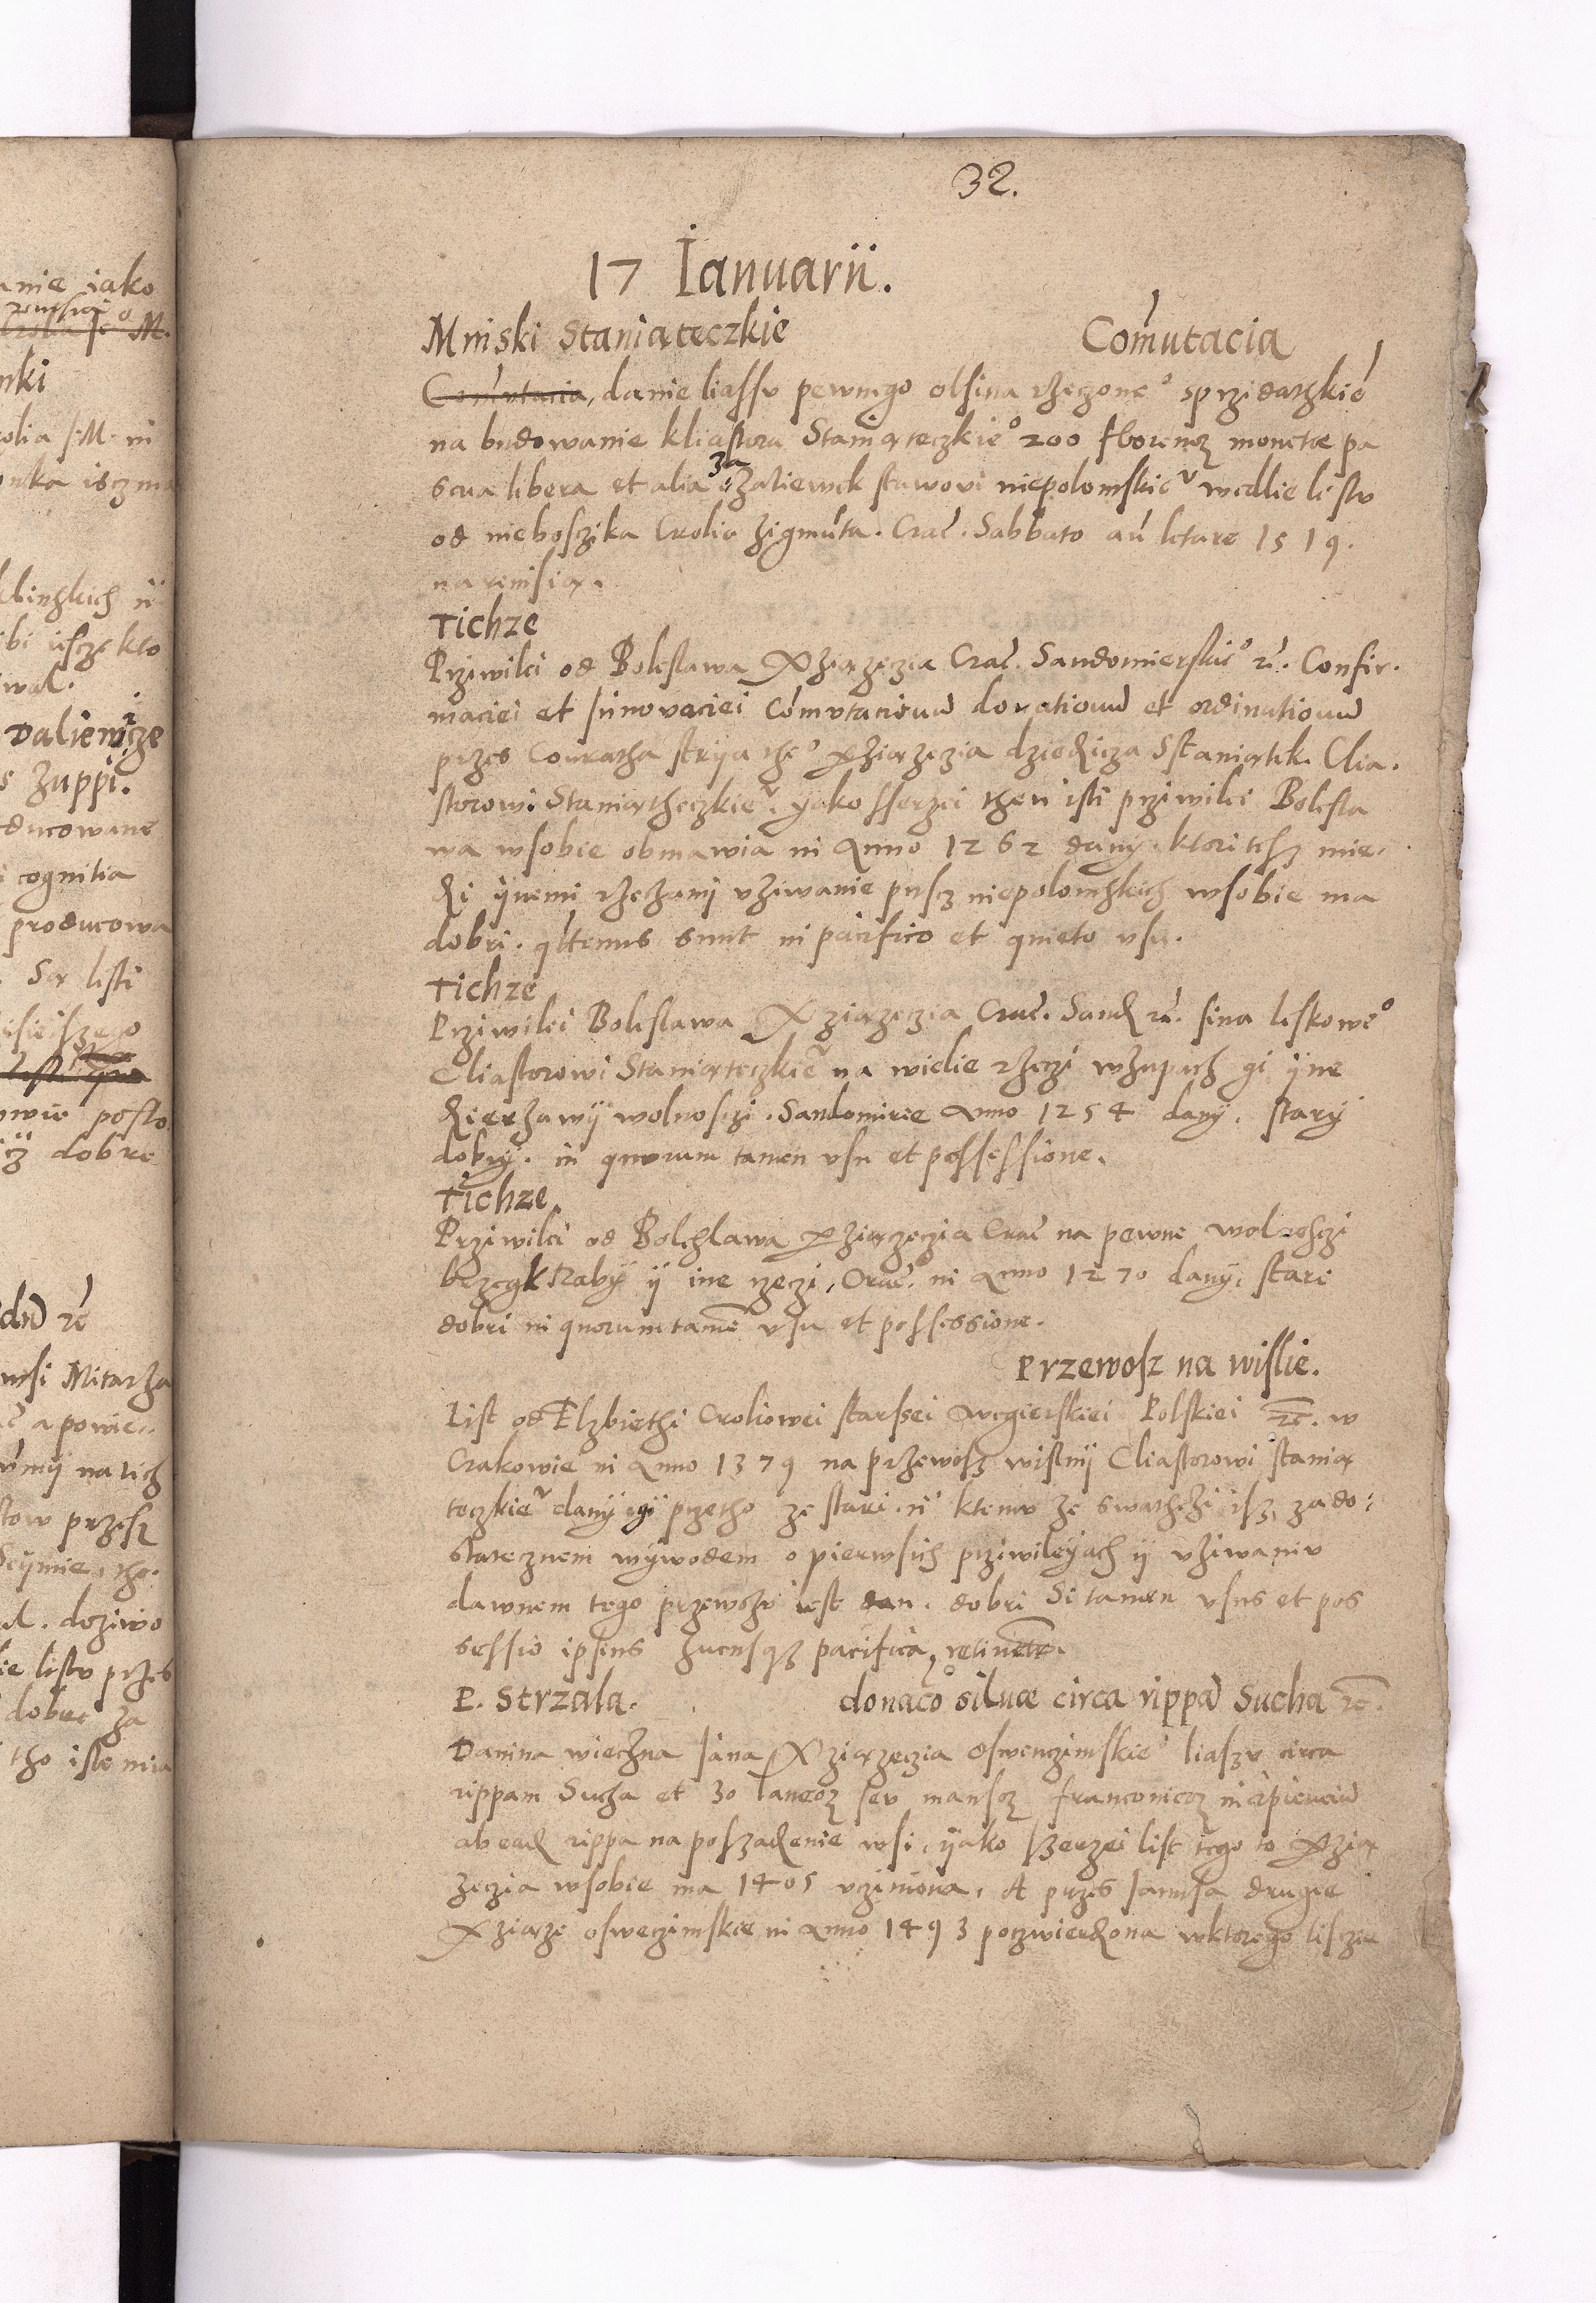 32.
17 Ianuarii.
Mniski Staniąteczkie Com̄utacia
Com̄utacia, danie liassu pewnego olsina rzeczone° sprzidatzkiē
na budowanie kliastora Staniąteczkie° 200 florenoꝝ monetæ pa
scua libera et alia za zaliewek stawowi niepolomskieᵘ wedlie listu
od nieboszika Crolia Zigmūta. Crac̄. Sabbato an̄ letare 1519.
na remisią.
Tichze
Prziwilei od Boleslawa Xziązęczia Crac̄. Sandomierskie° rc̄. Confir-
maciei et Innovaciei Com̄utacionū donationū et ordinationū
przes Conratha stryia the° xziązęzia dziedzicza Sstaniątek. Clia-
storowi Staniątheczkieᵘ. yako sserzei then isti prziwilei Bolesla
wa wsobie obmawia in Anno 1262 dany. ktori tesz mie-
dzi ÿnemi rzeczami vziwanie pusz niepolomzkich wsobie ma
dobri. q̄tenus sunt in pacifico et quieto vsu.
Tichze
Prziwilei Boleslawa Xziązęczia Crac̄. Sandz rc̄. sina leskowe°
Cliastorowi Staniąteczkieᵘ na wielie rzeczi wzupach gi ÿne
dzierzawÿ wolnosczi. Sandomirie Anno 1254 dany. starÿ
dobrÿ. in quorum tamen vsu et possessione.
Tichze
Prziwilei od Bolezlawa xziązęczia Crac̄ na pewne wolnosczi
brzegk Rabÿ ÿ ine rzeczi, Crac̄. in Anno 1270 danÿ, stari
dobri in quorum tamē vsu et possessione.
Przewosz na wislie.
List od Elzbiethi Croliowei starssei węgierskiei Polskiei rc̄. w
Crakowie in Anno 1379 na przewosz wislnÿ Cliastorowi stanią
teczkieᵘ danÿ gÿ przetho ze stari. ÿ ktemu ze swathczi isz, za do-
statecznem wÿwodem o pierwsich prziwileÿach ÿ vziwaniu
dawnem tego przewozu iest dan. dobri Si tamen vsus et pos
sessio ipsius hucusqꝫ pacifica, retinetr̄.
P. Strzala. donac̄o siluæ circa rippā Sucha rc̄.
Danina wiechna Iana Xziązęczia Oswenczimskie° liaszu circa
rippam Sucha et 30 laneoꝝ seu mansoꝝ franconicoꝝ incipienciū
ab eadꝫ rippa na poszadzenie wsi, ÿako szerzei list tego to xzią
zęczia wsobie ma 1405 vcziniona, A przes Ianusa drugie
Xziąze oswęczimskie in Anno 1493 poczwierdzona wktorego lisczie